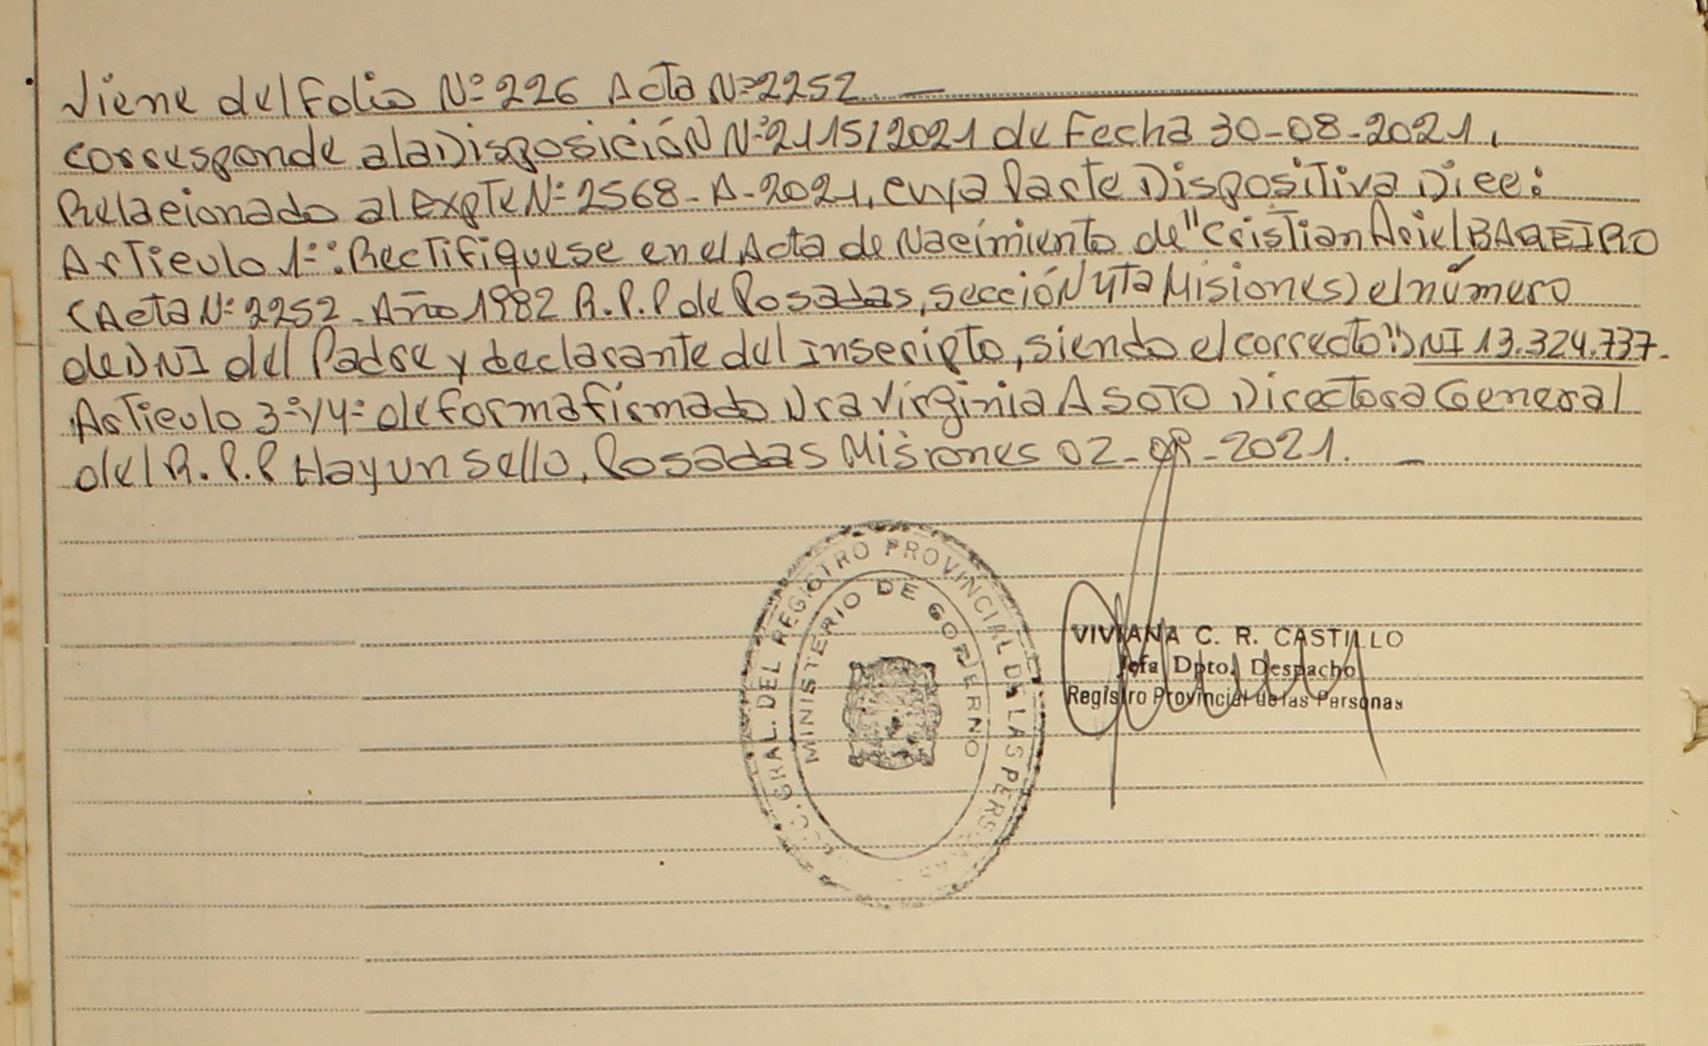 Viene del Folio Nº 226 Acta Nº 2252. —
Corresponde a la Disposición Nº 2115/2021 de Fecha 30-08-2021,
Relacionado al expte Nº 2568-A-2021, cuya Parte Dispositiva Dice:
Artículo 1º: Rectifíquese en el Acta de Nacimiento de "Cristian Ariel BAREIRO
(Acta Nº 2252 - Año 1982 R.P.P de Posadas, sección 4ta Misiones) el número
de DNI del Padre y declarante del inscripto, siendo el correcto "DNI 13.324.737.
Artículo 3º y 4º de forma firmado Dra Virginia A SOTO Directora General
del R.P.P Hay un Sello, Posadas Misiones 02-09-2021. —
GRAL. DEL REGISTRO PROVINCIAL DE LAS PERSONAS
MINISTERIO DE GOBIERNO
VIVIANA C. R. CASTILLO
Jefa Dpto. Despacho
Registro Provincial de las Personas